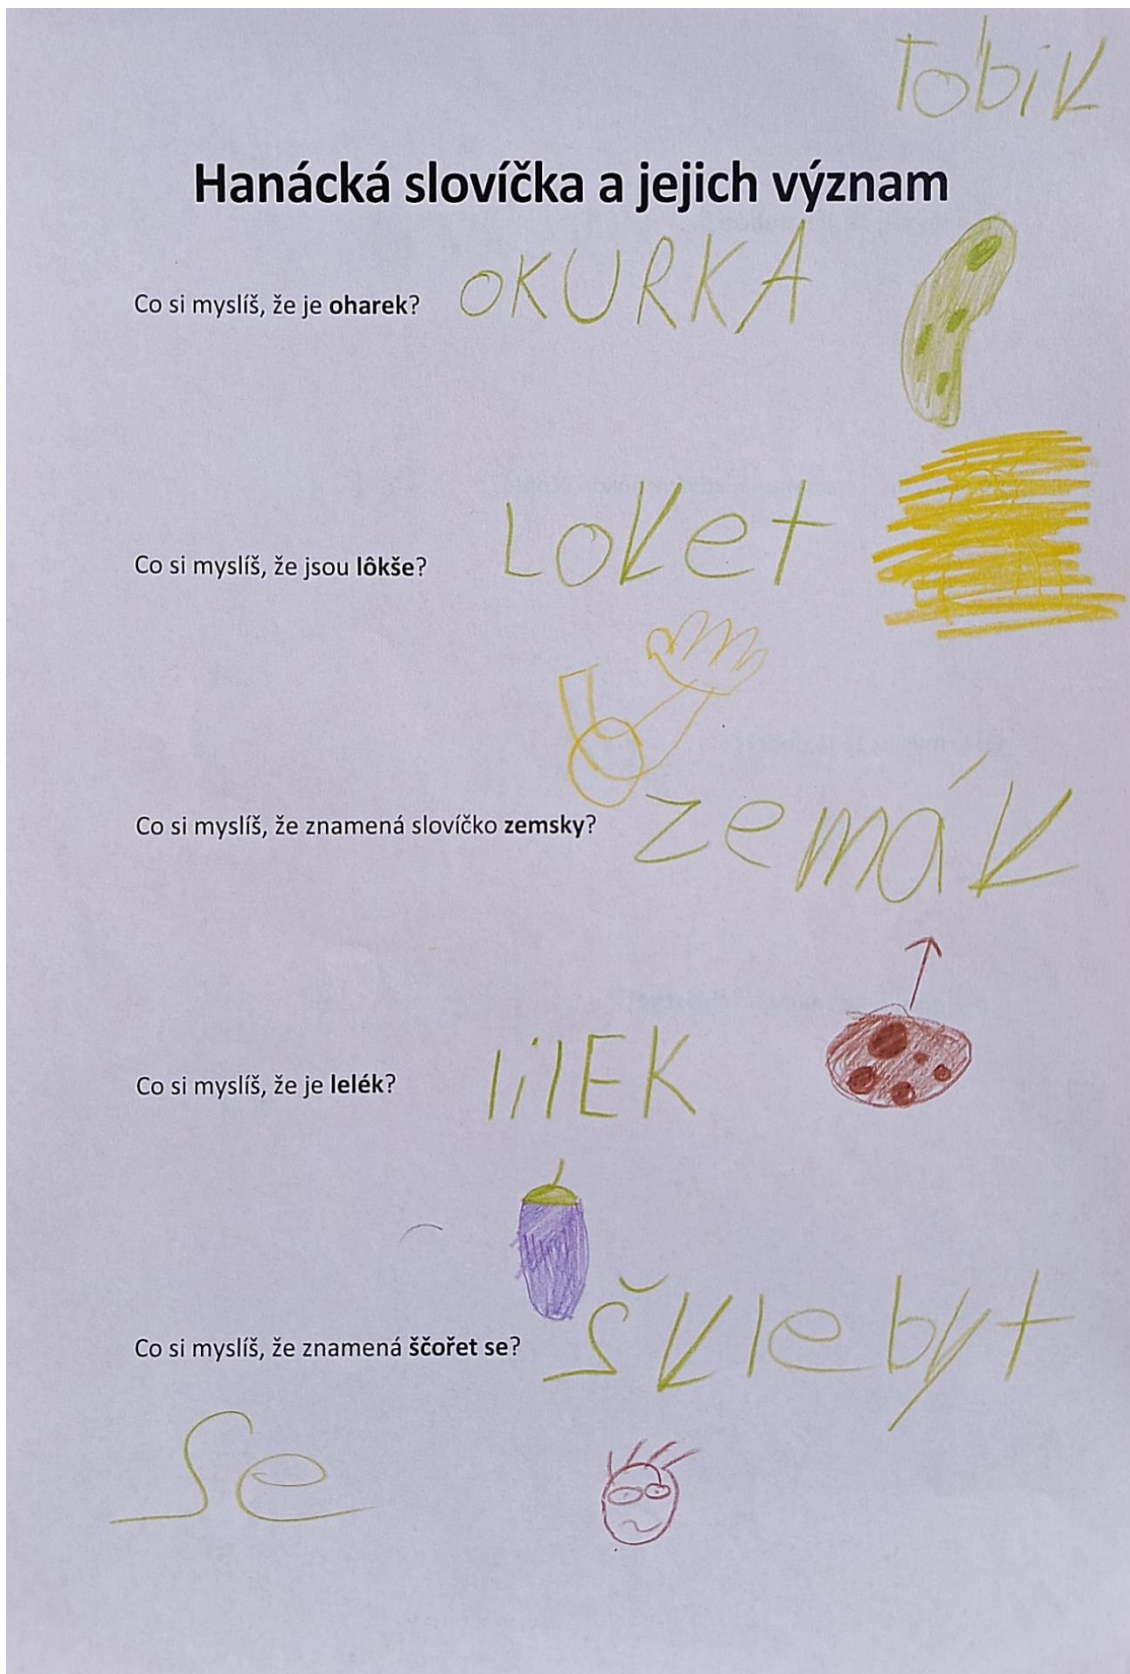 Tobik
Hanácká slovíčka a jejich význam
Co si myslíš, že je oharek? OKURKA
Co si myslíš, že jsou lôkše? Loket
Co si myslíš, že znamená slovíčko zemsky? zemák
Co si myslíš, že je lelék? lilEK
Co si myslíš, že znamená ščořet se? šklebyt
se